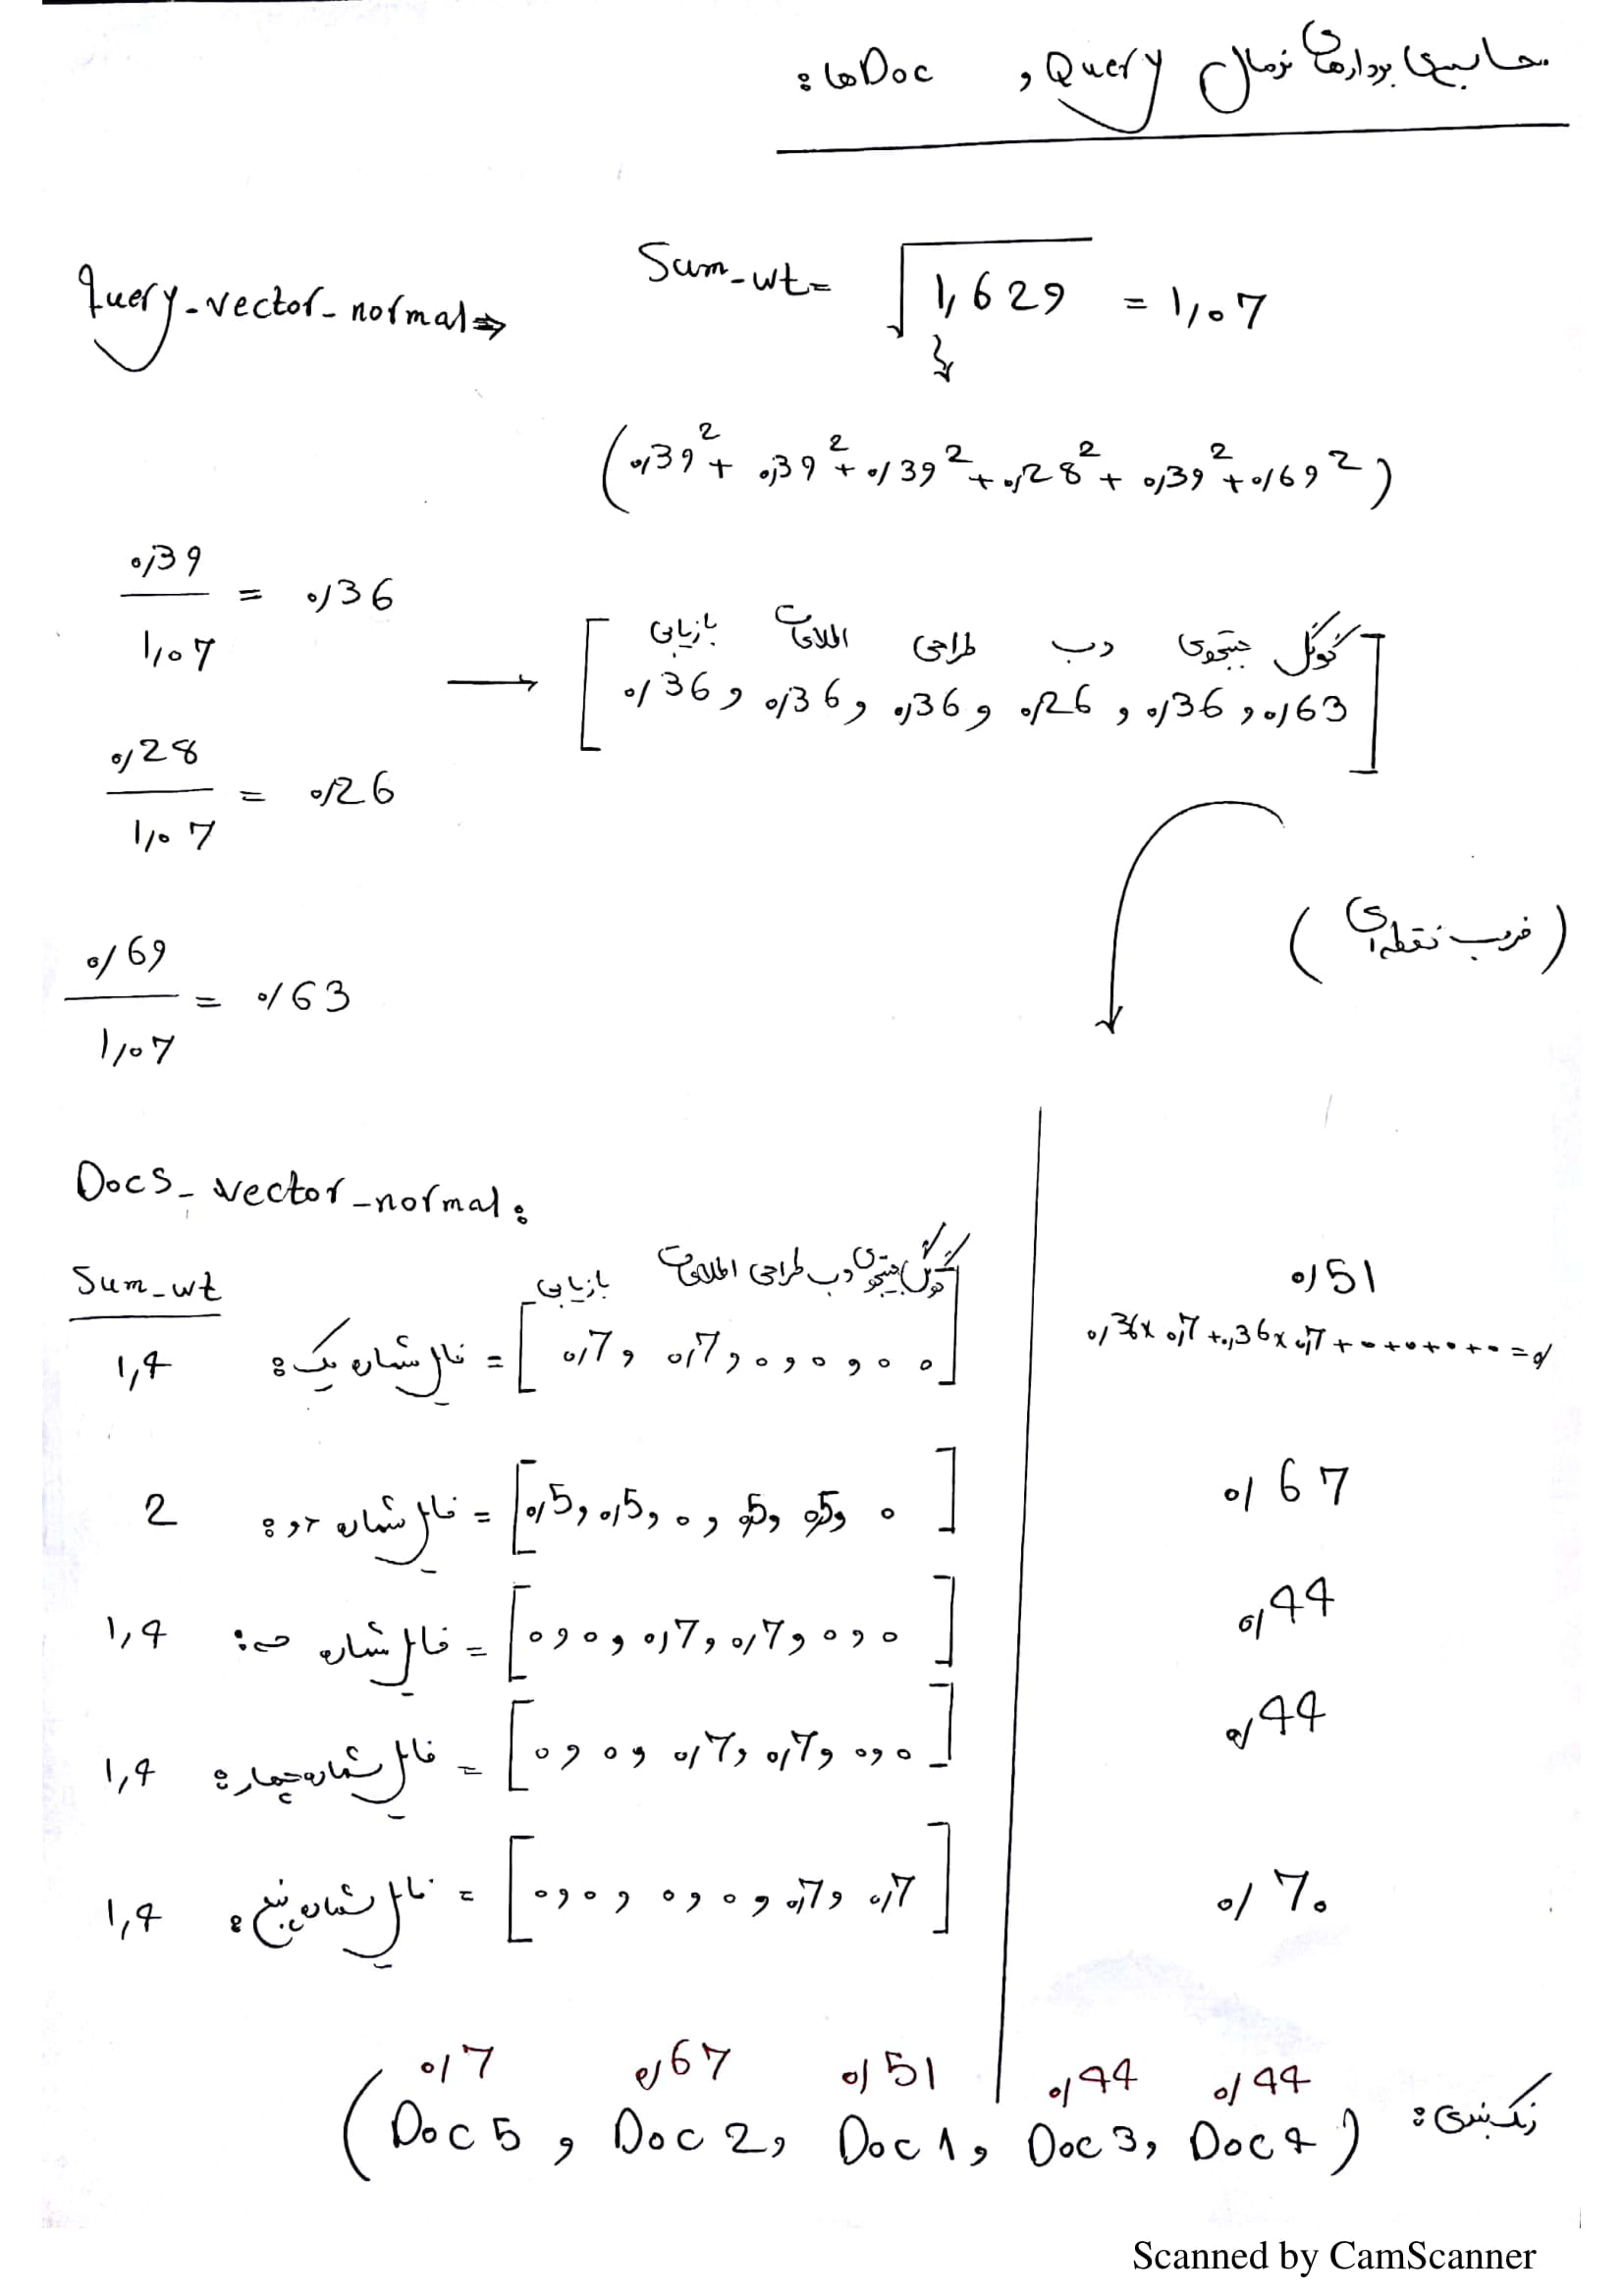 محاسبه‌ی بردارهای نرمال Query و Docها:
Query_vector_normal⇒ Sum_wt= √1,629 = 1,07
(0,39² + 0,39² + 0,39² + 0,28² + 0,39² + 0,69²)
0,39 / 1,07 = 0,36
بازیابی اطلاعات طراحی وب جستجوی گوگل
→ [0,36 و 0,36 و 0,36 و 0,26 و 0,36 و 0,63]
0,28 / 1,07 = 0,26
(ضرب نقطه‌ای)
0,69 / 1,07 = 0,63
Docs_vector_normal:
بازیابی اطلاعات طراحی وب جستجوی گوگل
Sum_wt
0,51
1,4 فایل شماره یک: = [0,7 و 0,7 و 0 و 0 و 0 و 0] 0,36x 0,7 + 0,36x 0,7 + 0 + 0 + 0 + 0 = 0/
2 فایل شماره دو: = [0,5 و 0,5 و 0 و 0,5 و 0,5 و 0] 0,67
1,4 فایل شماره سه: = [0 و 0 و 0,7 و 0,7 و 0 و 0] 0,44
1,4 فایل شماره چهار: = [0 و 0 و 0,7 و 0,7 و 0 و 0] 0,44
1,4 فایل شماره پنج: = [0 و 0 و 0 و 0 و 0,7 و 0,7] 0,70
0,7 0,67 0,51 0,44 0,44
رنک‌بندی: (Doc5 و Doc2 و Doc1 و Doc3 و Doc4)
Scanned by CamScanner